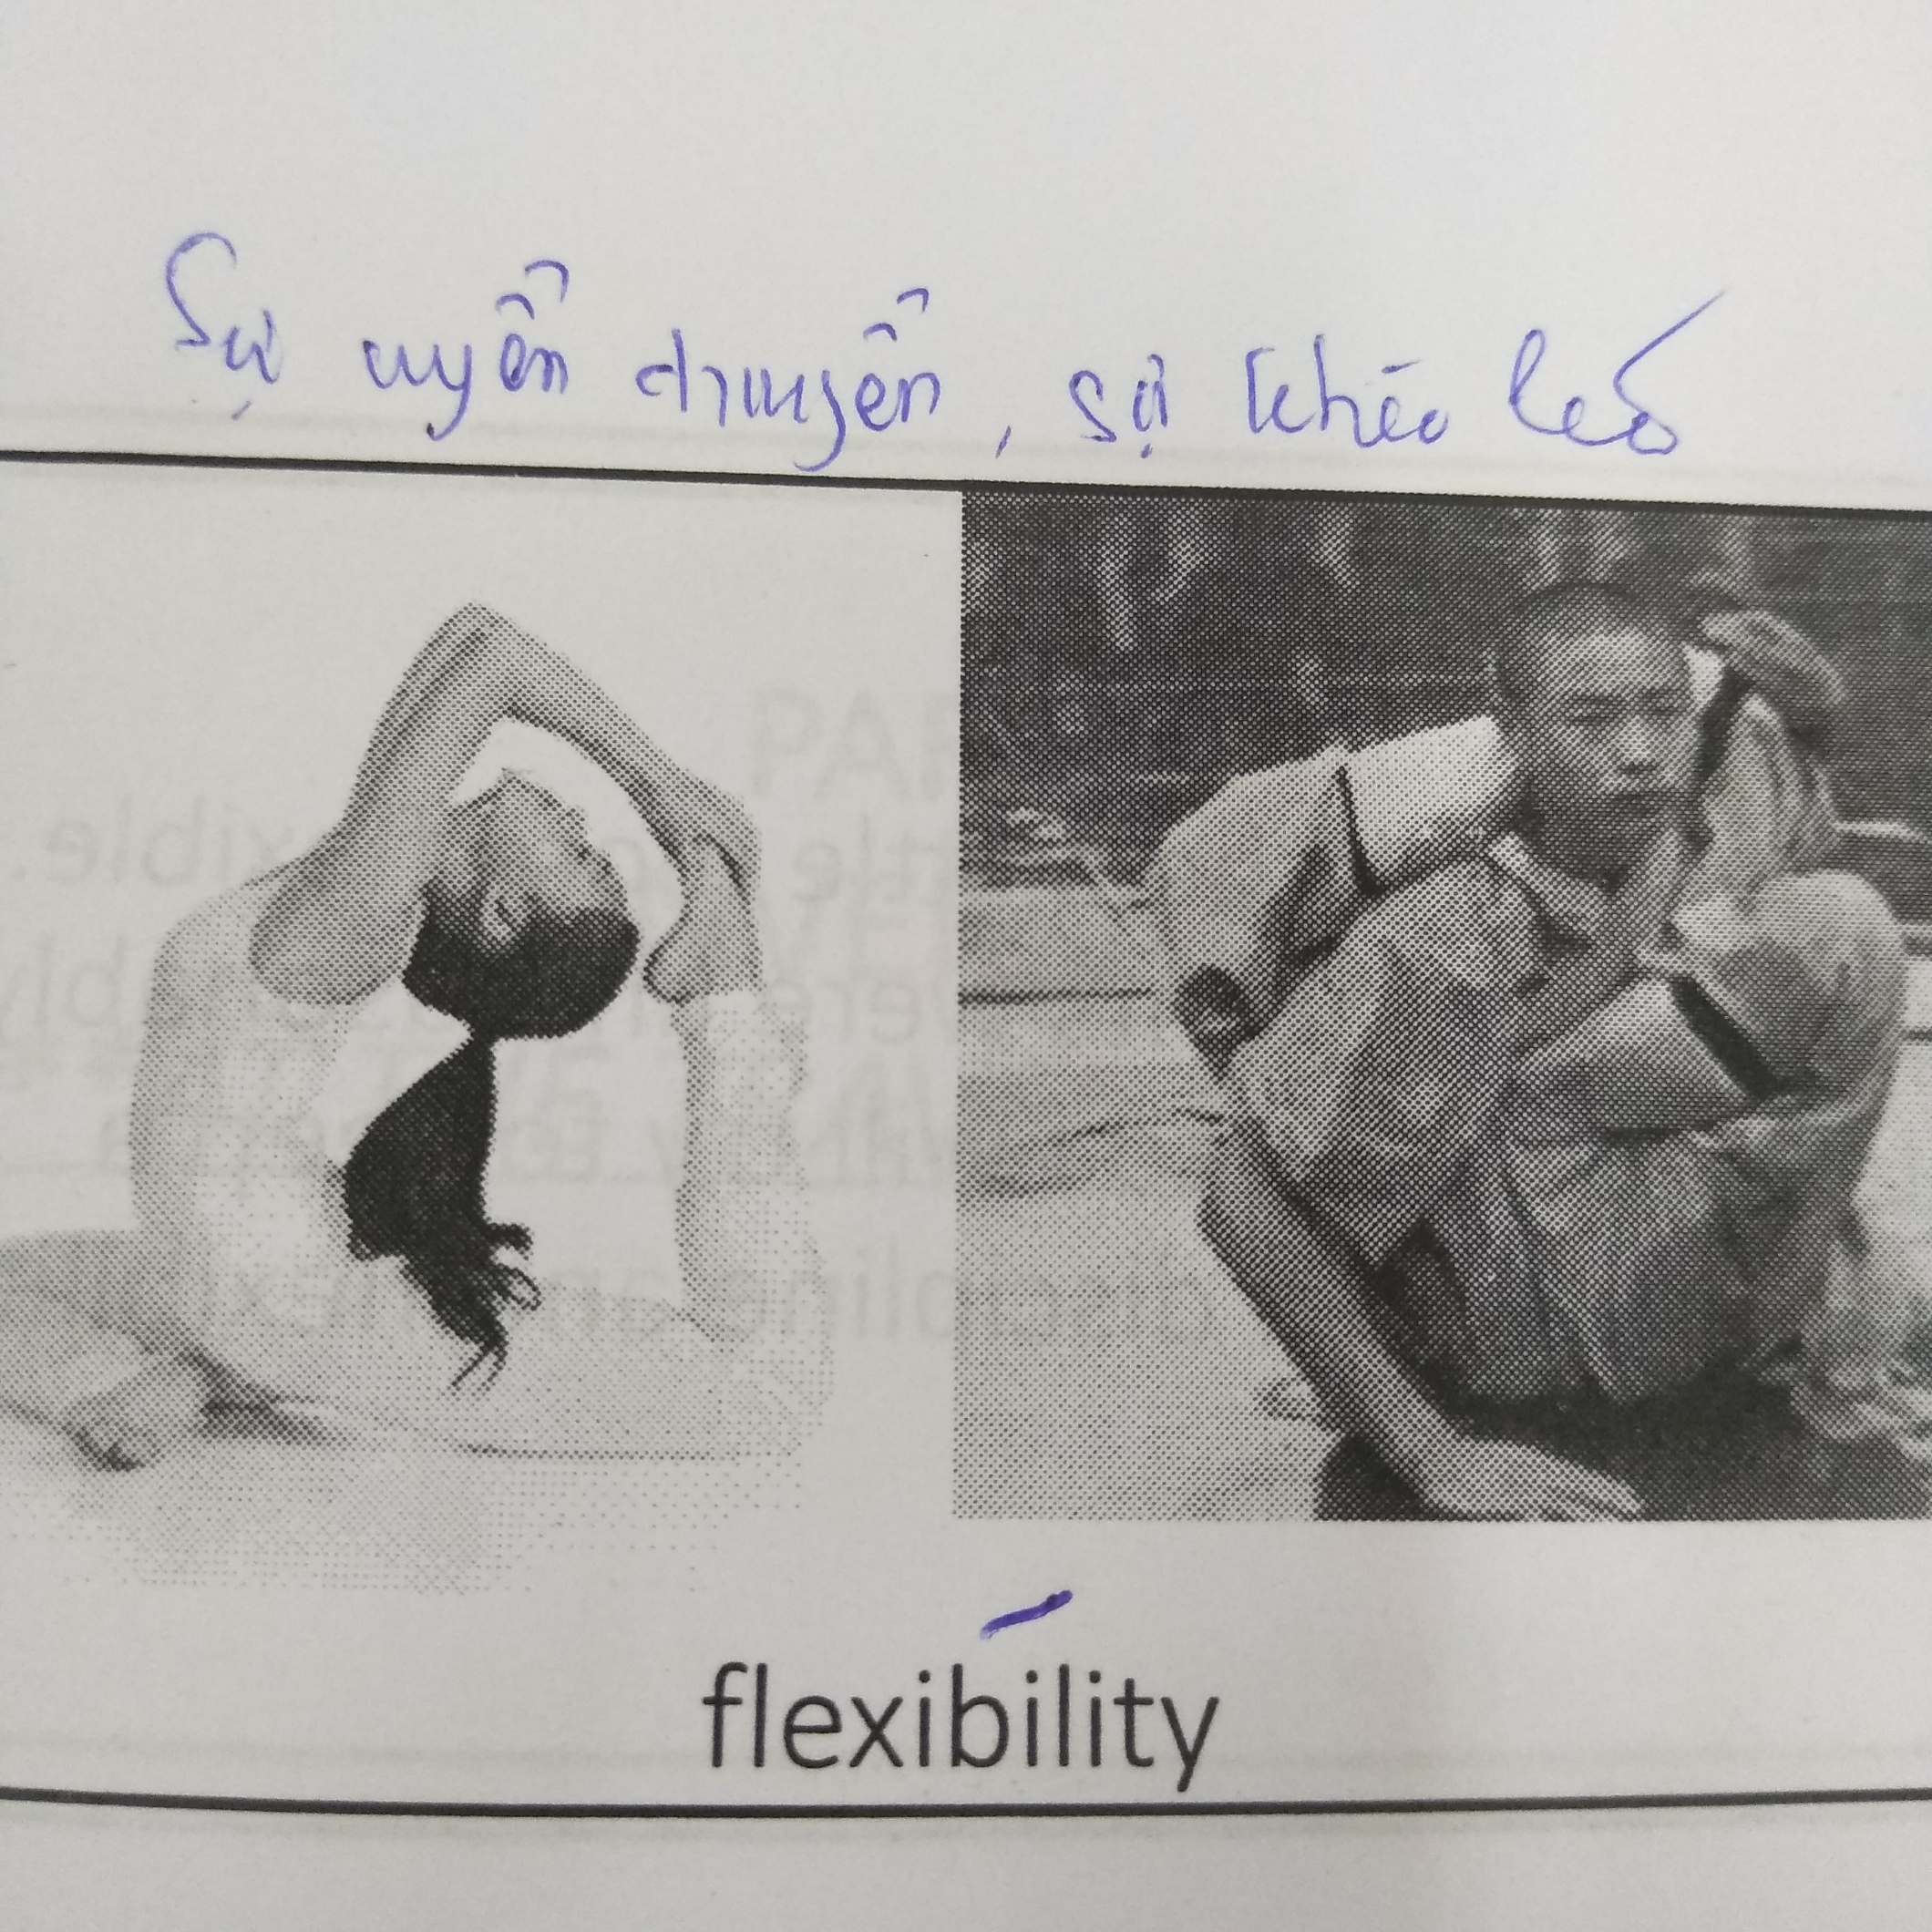 Sự uyển chuyển, sự khéo léo
flexibility